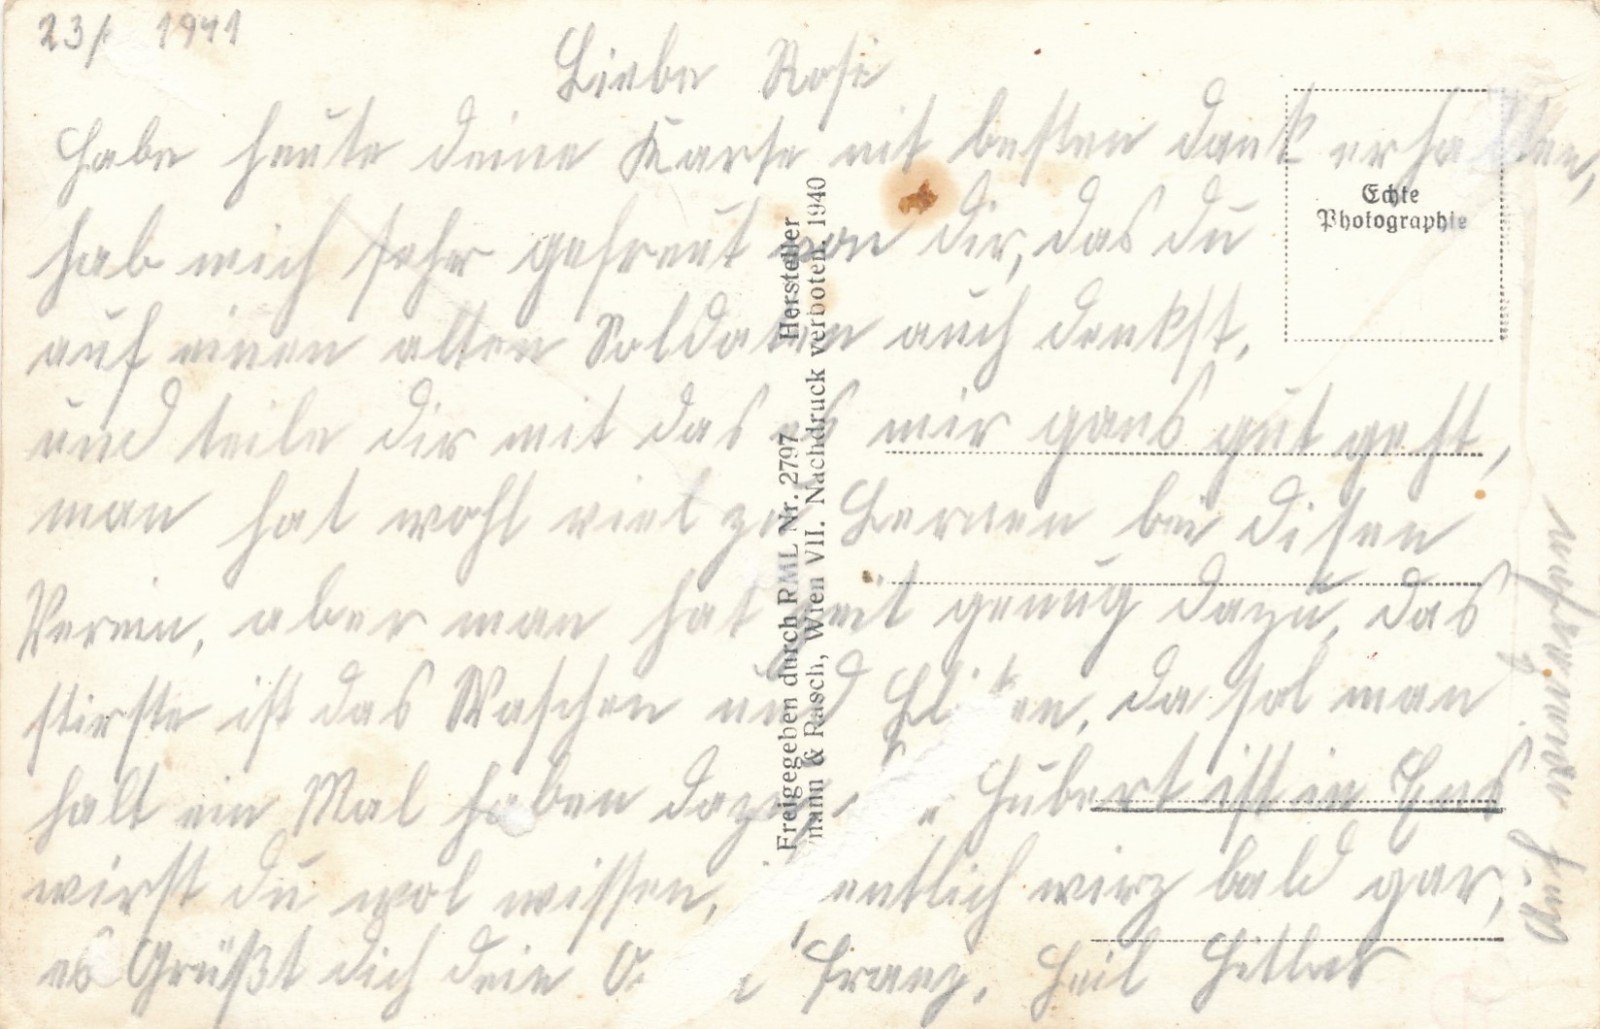 23/ 1941
Liebe Rosi
Habe heute deine Karte mit besten dank erhalten,
hab mich sehr gefreut von dir, das du
auf einen alten Soldaten auch denkst,
und teile dir mit das es mir gans gut geht,
man hat wohl viel zu Lernen bei disen
Verein, aber man hat Zeit genug dazu, das
ist das Waschen und da sol man
halt ein Mal haben dazu Hubert ist in Ens
wirst du wol wissen, entlich wirz bald gar,
es Grüßt dich dein Franz, Heil Hitler
Auf
Echte
Photographie
Freigegeben durch RML Nr. 2797 Hersteller
mann & Rasch, Wien VII. Nachdruck verboten. 1940